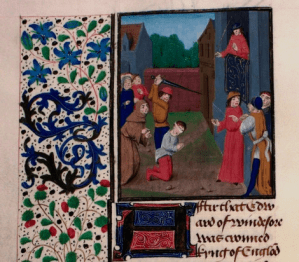 After that Edw
ard of windesore
was crowned
kyng of Englād